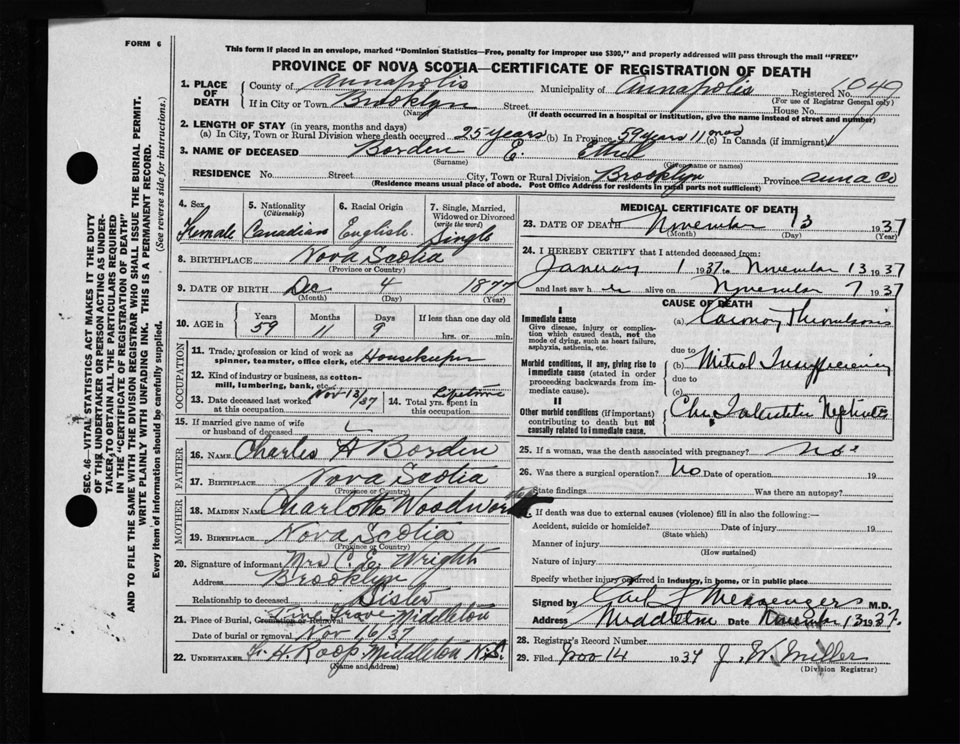 FORM 6
This form if placed in an envelope, marked "Dominion Statistics—Free, penalty for improper use $300," and properly addressed will pass through the mail "FREE"
PROVINCE OF NOVA SCOTIA—CERTIFICATE OF REGISTRATION OF DEATH
1. PLACE OF DEATH County of Annapolis Municipality of Annapolis Registered No. 1049
(For use of Registrar General only)
If in City or Town Brooklyn Street House No.
(Name) (If death occurred in a hospital or institution, give name instead of street and number)
2. LENGTH OF STAY (in years, months and days)
(a) In City, Town or Rural Division where death occurred 25 years (b) In Province 59 years 11 mos (c) In Canada (if immigrant)
3. NAME OF DECEASED Borden E. Ethel
(Surname) (Given name or names)
RESIDENCE No. Street City, Town or Rural Division Brooklyn Province Anna Co
(Residence means usual place of abode. Post Office Address for residents in rural parts not sufficient)
4. Sex Female
5. Nationality (Citizenship) Canadian
6. Racial Origin English
7. Single, Married, Widowed or Divorced (write the word) Single
8. BIRTHPLACE Nova Scotia
(Province or Country)
9. DATE OF BIRTH Dec 4 1877
(Month) (Day) (Year)
10. AGE in Years Months Days If less than one day old
59 11 9 hrs. or min.
OCCUPATION
11. Trade, profession or kind of work as spinner, teamster, office clerk, etc. Housekeeper
12. Kind of industry or business, as cotton-mill, lumbering, bank, etc.
13. Date deceased last worked at this occupation Nov 13/37
14. Total yrs. spent in this occupation Lifetime
15. If married give name of wife or husband of deceased
FATHER
16. NAME Charles H Borden
17. BIRTHPLACE Nova Scotia
(Province or Country)
MOTHER
18. MAIDEN NAME Charlotte Woodworth
19. BIRTHPLACE Nova Scotia
(Province or Country)
20. Signature of informant Mrs C. E. Wright
Address Brooklyn
Relationship to deceased Sister
21. Place of Burial, Cremation or Removal Pine Grove Middleton
Date of burial or removal Nov 16/37
22. UNDERTAKER H. Roop Middleton N.S.
(Name and address)
MEDICAL CERTIFICATE OF DEATH
23. DATE OF DEATH November 13 1937
(Month) (Day) (Year)
24. I HEREBY CERTIFY that I attended deceased from:
January 1 1937 to November 13 1937
and last saw h er alive on November 7 1937
CAUSE OF DEATH
I
Immediate cause
Give disease, injury or complication which caused death, not the mode of dying, such as heart failure, asphyxia, asthenia, etc.
(a) Coronary Thrombosis
due to
Morbid conditions, if any, giving rise to immediate cause (stated in order proceeding backwards from immediate cause).
(b) Mitral Insufficiency
due to
(c)
II
Other morbid conditions (if important) contributing to death but not causally related to immediate cause.
Nephritis
25. If a woman, was the death associated with pregnancy? No.
26. Was there a surgical operation? No Date of operation 19
State findings Was there an autopsy?
27. If death was due to external causes (violence) fill in also the following:—
Accident, suicide or homicide? Date of injury 19
(State which)
Manner of injury
(How sustained)
Nature of injury
Specify whether injury occurred in Industry, in home, or in public place
Signed by Messengers M.D.
Address Middleton Date November 13 1937.
28. Registrar's Record Number
29. Filed Nov 14 1937 J. W. Miller
(Division Registrar)
SEC. 46—VITAL STATISTICS ACT MAKES IT THE DUTY OF THE UNDERTAKER OR PERSON ACTING AS UNDERTAKER, TO OBTAIN ALL THE PARTICULARS REQUIRED IN THE "CERTIFICATE OF REGISTRATION OF DEATH"
AND TO FILE THE SAME WITH THE DIVISION REGISTRAR WHO SHALL ISSUE THE BURIAL PERMIT.
WRITE PLAINLY WITH UNFADING INK. THIS IS A PERMANENT RECORD.
Every item of Information should be carefully supplied. (See reverse side for instructions.)